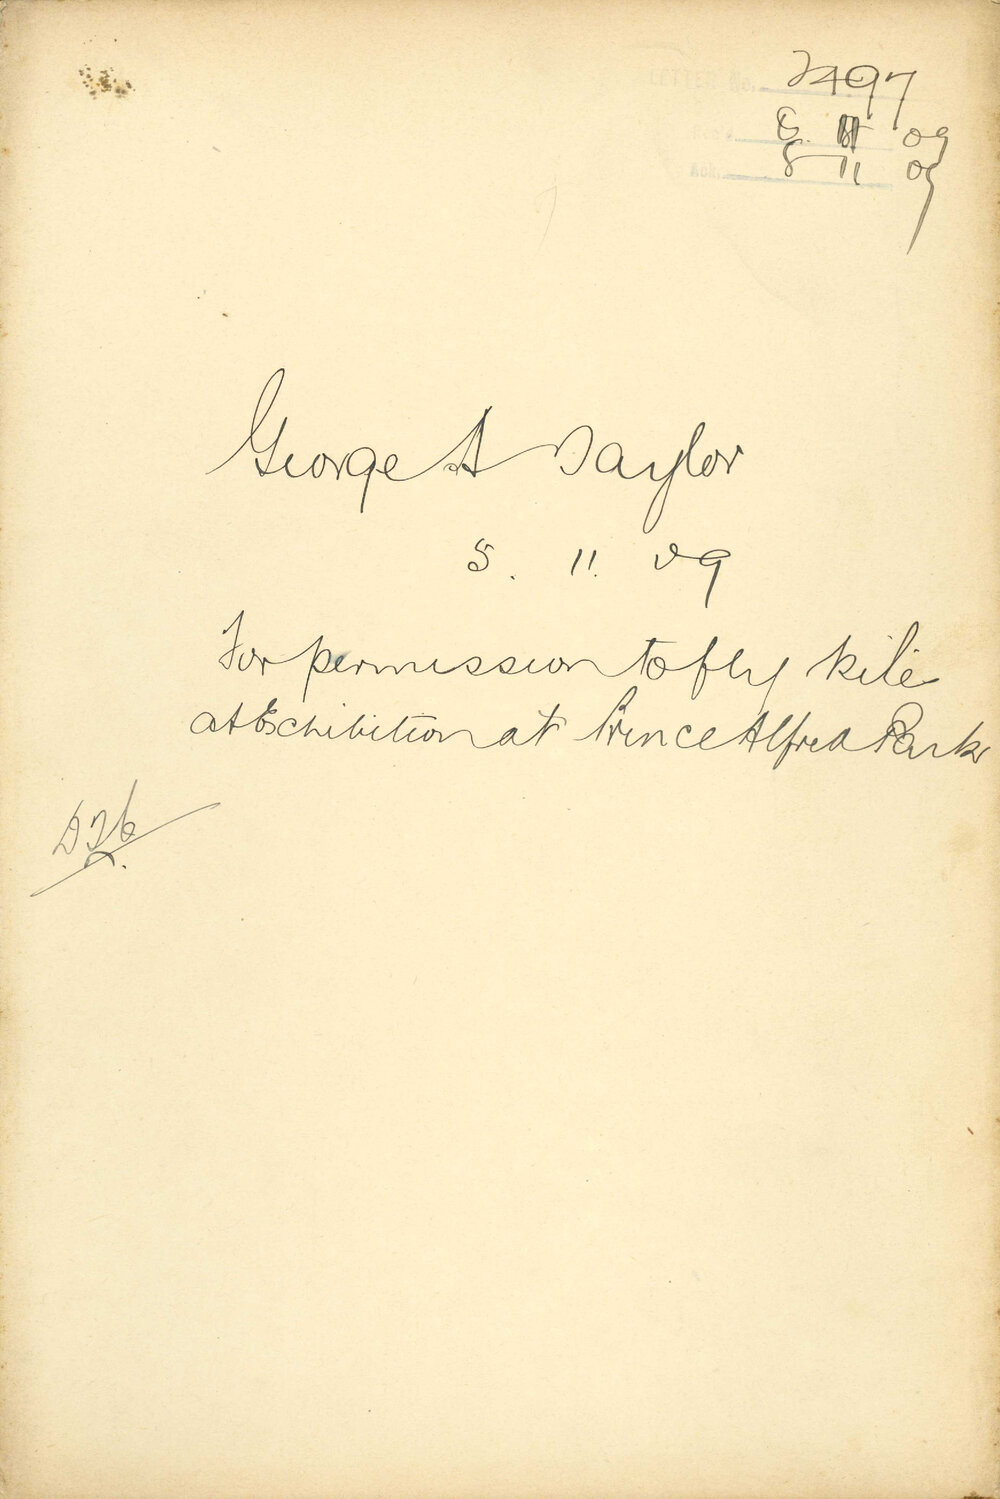 2497
8. 11 09
8 11 09
George A Taylor
5. 11. 09
For permission to fly kite
at Exhibition at Prince Alfred Park